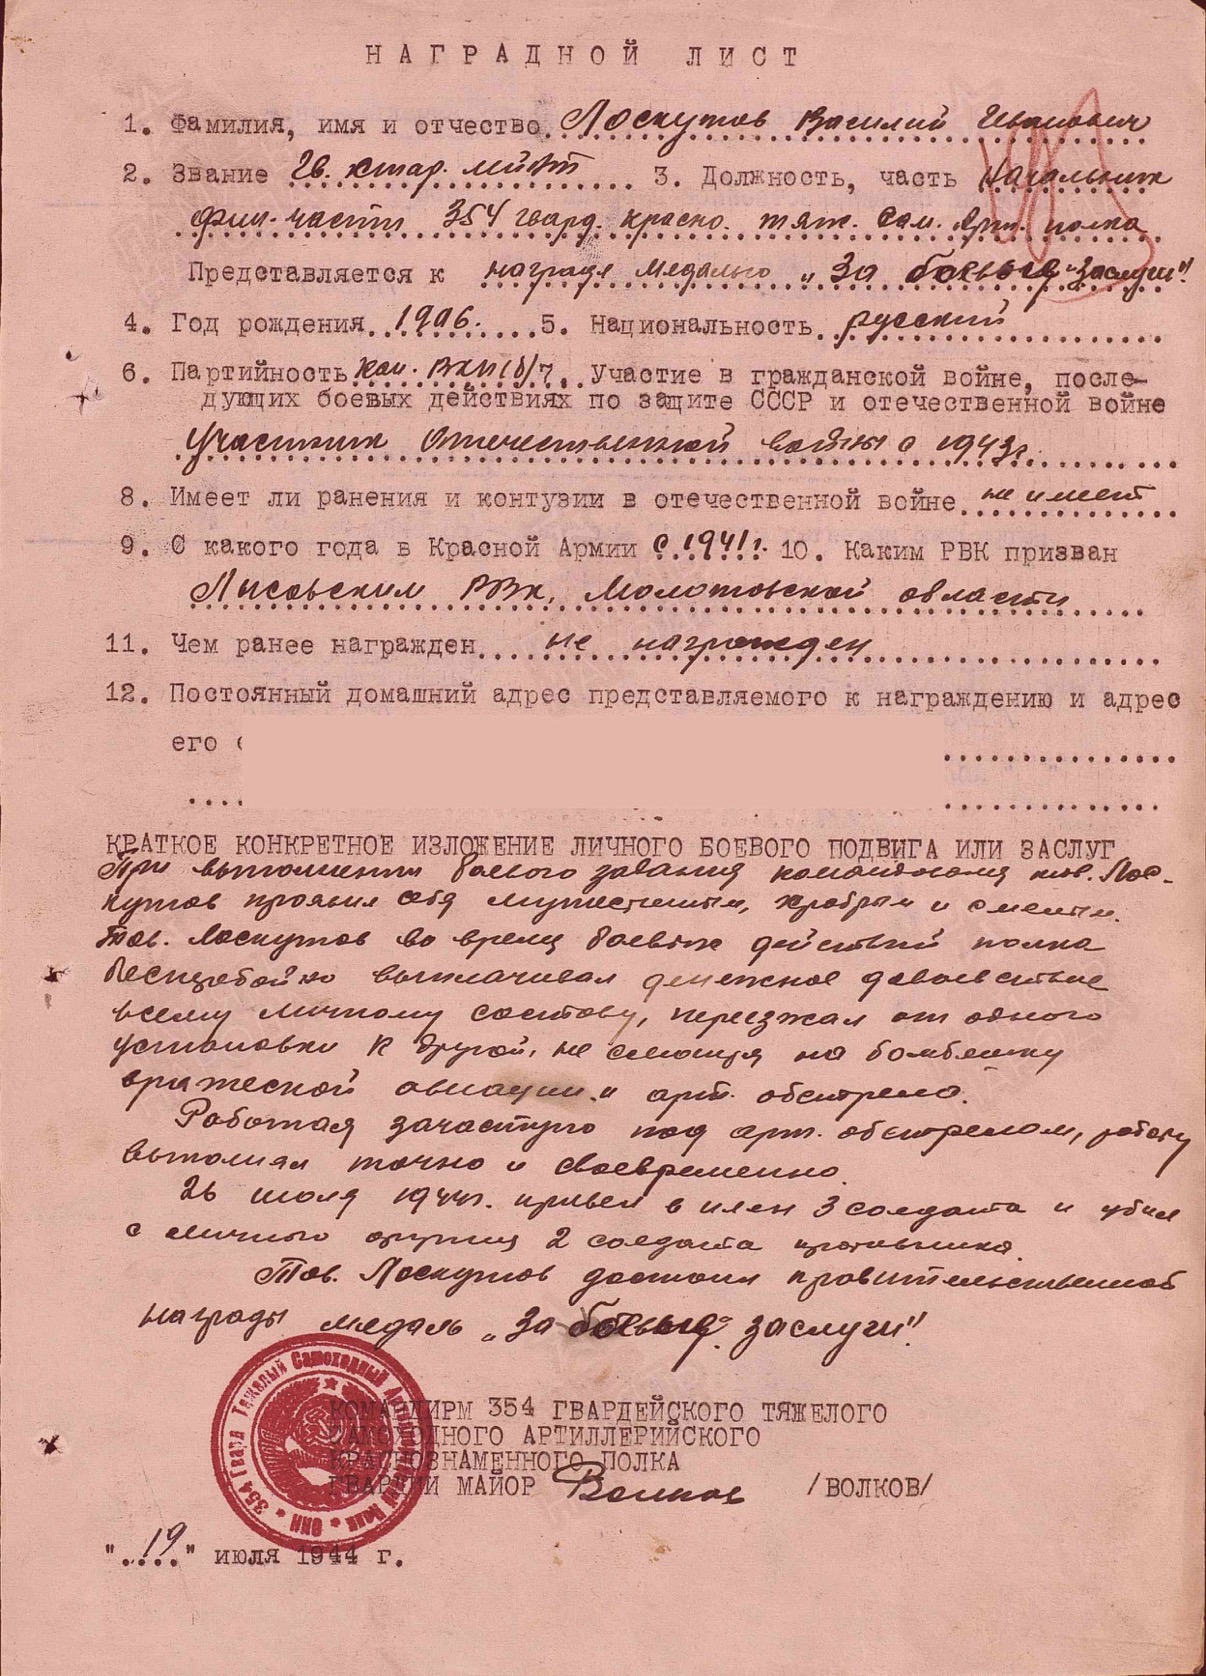 НАГРАДНОЙ ЛИСТ
1. Фамилия, имя и отчество Лоскутов Василий Иванович
2. Звание Гв. стар. лейт 3. Должность, часть Начальник
фин. части 354 гвард. красно. тяж. сам. арт. полка
Представляется к награде медалью „За боевые заслуги"
4. Год рождения 1906. 5. Национальность русский
6. Партийность кан. ВКП(б) 7. Участие в гражданской войне, после-
дующих боевых действиях по защите СССР и отечественной войне
участник Отечественной войны с 1943г.
8. Имеет ли ранения и контузии в отечественной войне не имеет
9. С какого года в Красной Армии с 1941г. 10. Каким РВК призван
Лысовским РВК, Молотовской области
11. Чем ранее награжден не награжден
12. Постоянный домашний адрес представляемого к награждению и адрес
его
КРАТКОЕ КОНКРЕТНОЕ ИЗЛОЖЕНИЕ ЛИЧНОГО БОЕВОГО ПОДВИГА ИЛИ ЗАСЛУГ
При выполнении боевого задания командования тов. Лос-
кутов проявил себя мужественным, храбрым и смелым.
Тов. Лоскутов во время боевых действий полка
бесперебойно выплачивал денежное довольствие
всему личному составу, переезжал от одного
установки к другой, не смотря на бомбежку
вражеской авиации и арт. обстрела.
Работая зачастую под арт. обстрелом, работу
выполнял точно и своевременно.
26 июля 1944г. привел в плен 3 солдата и убил
с личного оружия 2 солдата противника.
Тов. Лоскутов достоин правительственной
награды медаль „За боевые заслуги"
КОМАНДИРМ 354 ГВАРДЕЙСКОГО ТЯЖЕЛОГО
САМОХОДНОГО АРТИЛЛЕРИЙСКОГО
КРАСНОЗНАМЕННОГО ПОЛКА
ГВАРДИИ МАЙОР Волков /ВОЛКОВ/
354 Гвард Тяжелый Самоходный Полк НКО
"19" июля 1944 г.